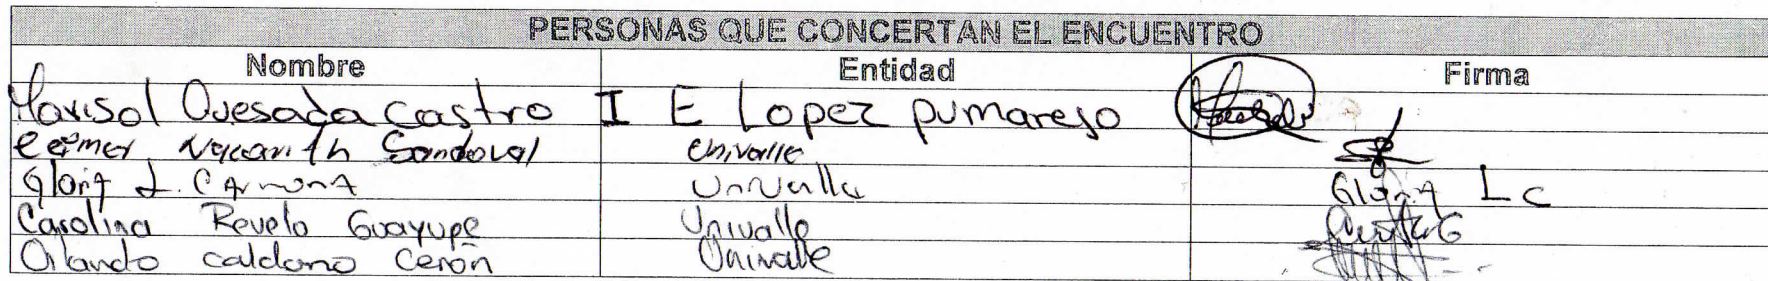 PERSONAS QUE CONCERTAN EL ENCUENTRO
Nombre Entidad Firma
Marisol Quesada Castro I E Lopez pumarejo
Sandoval Univalle
Gloria L. CArmonA Univalle Gloria L C
Carolina Revelo Guayupe Univalle
Orlando caldono Cerón Univalle